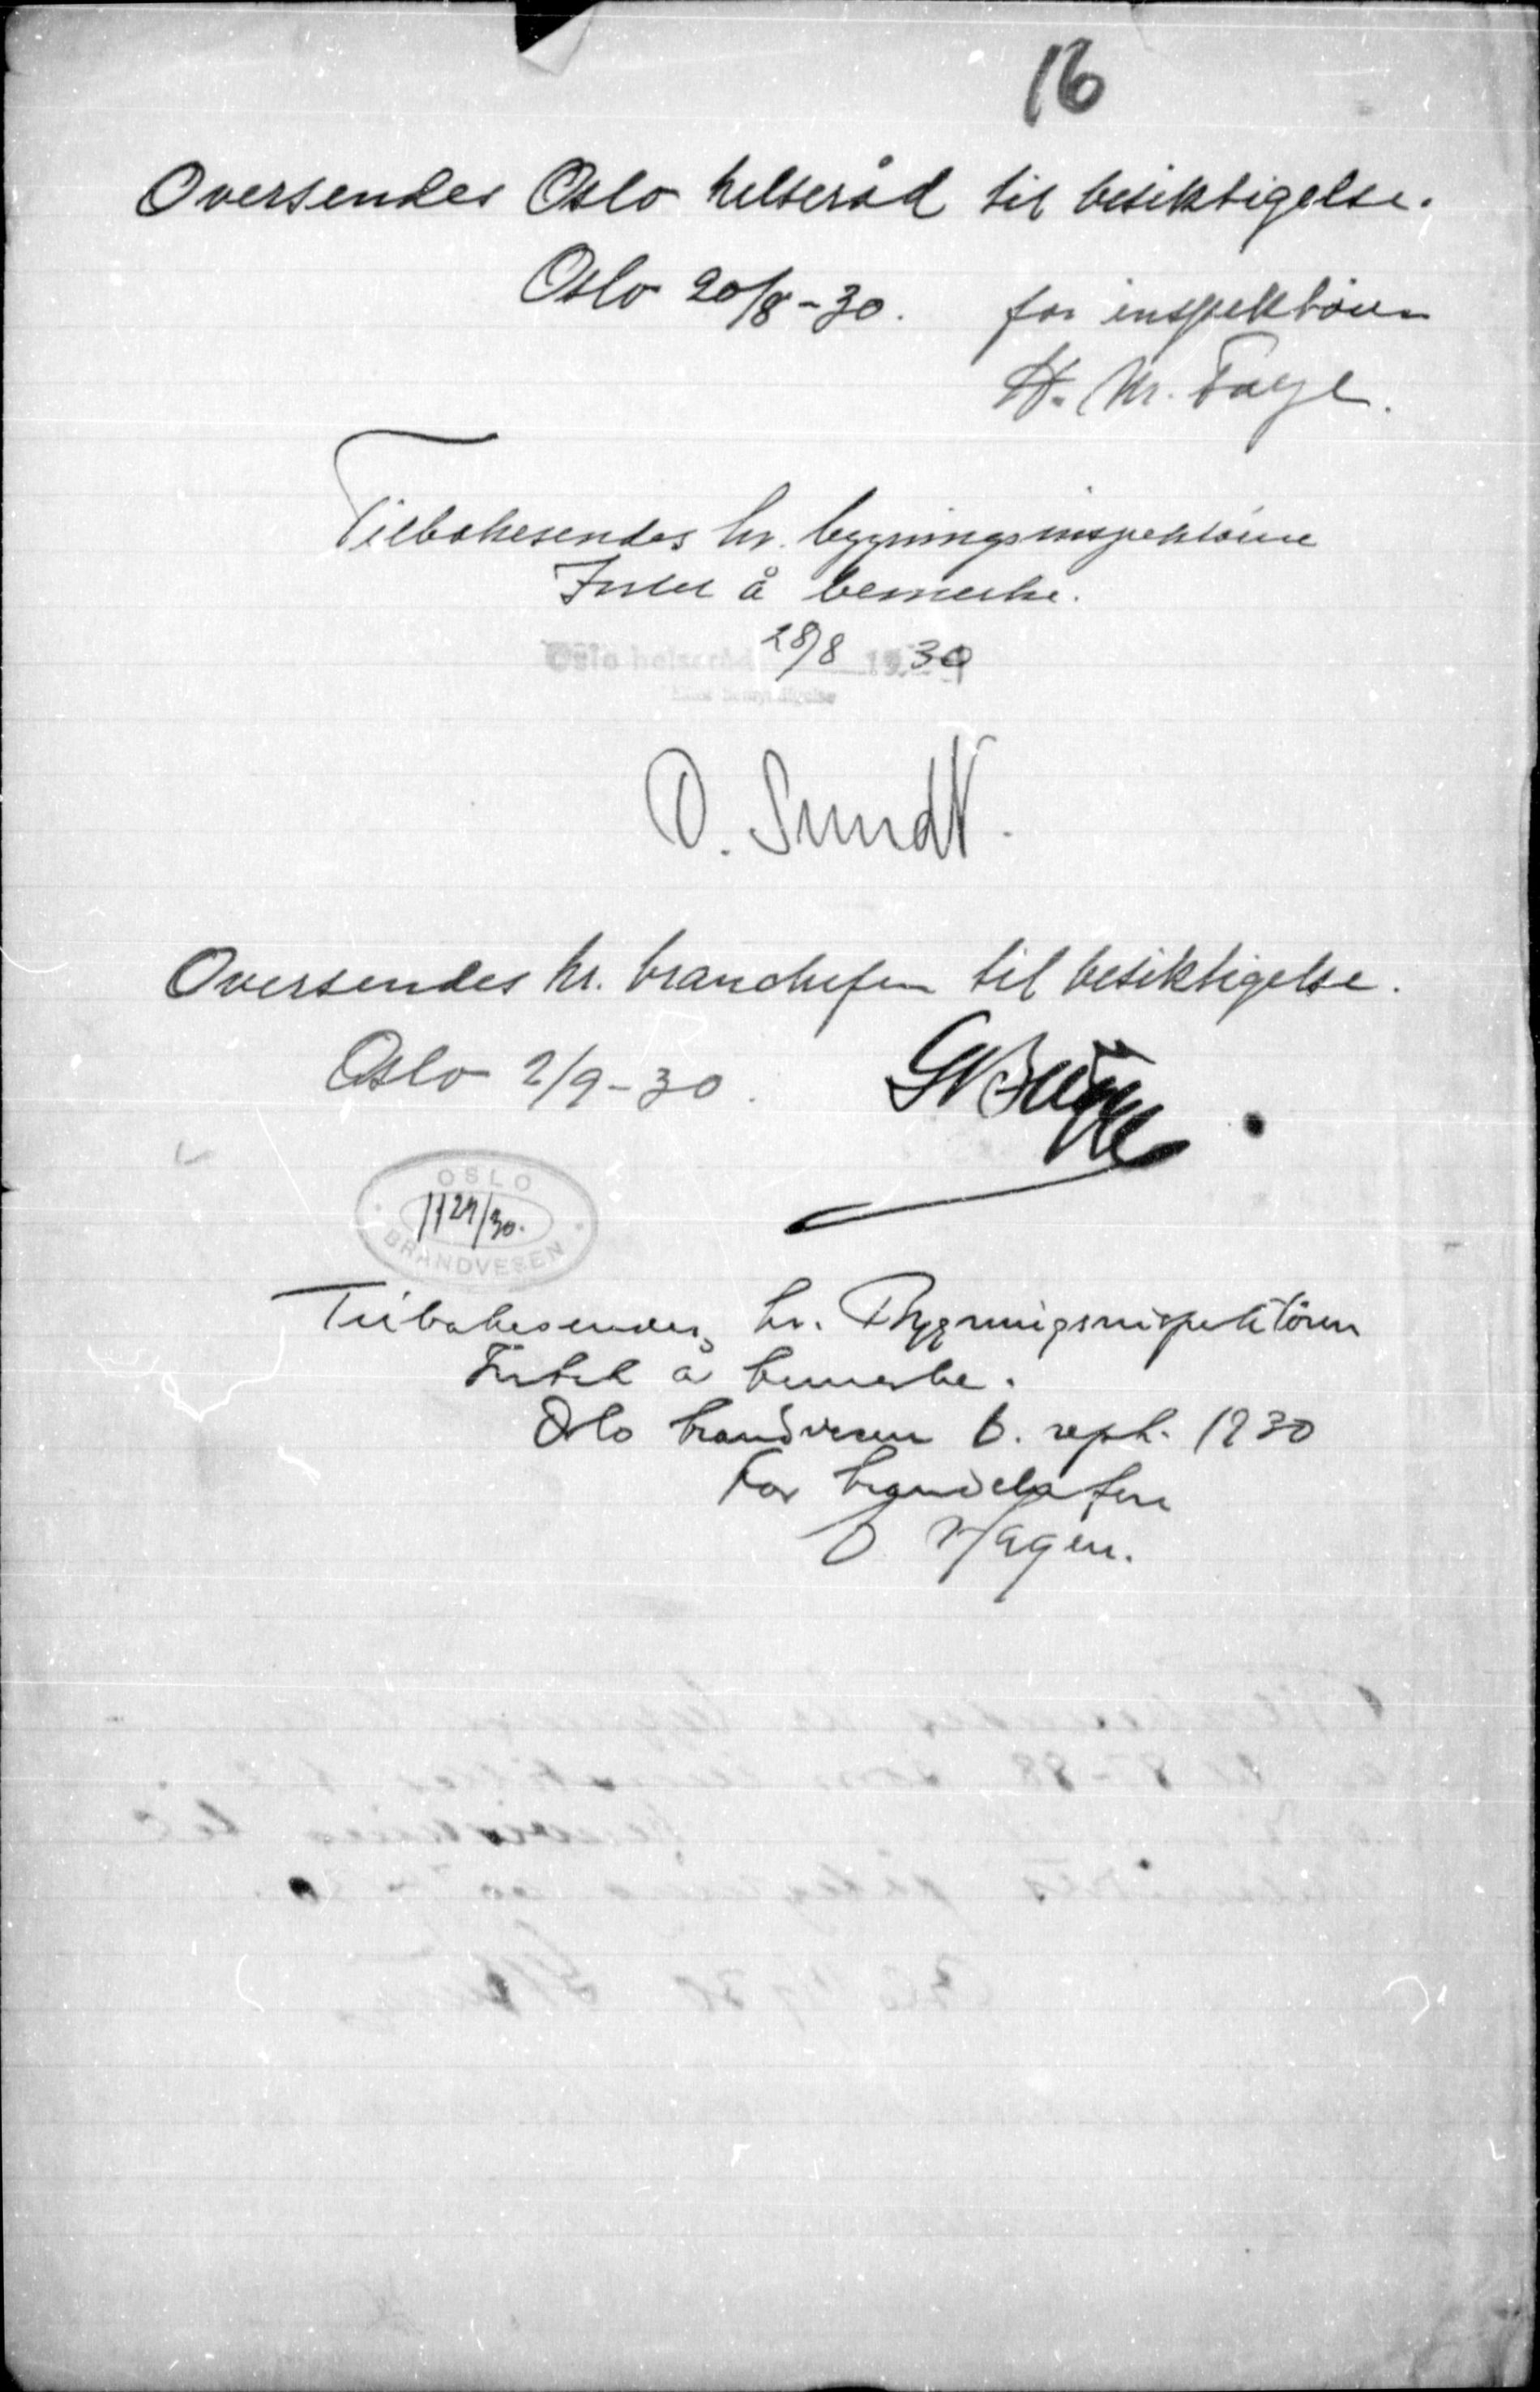 16
Oversendes Oslo helseråd til besiktigelse.
Oslo 20/8-30. for inspektøren
H. Mr. Faye.
Tilbakesendes hr. bygningsinspektøren
Intet å bemerke.
Oslo helseråd 28/8 1930
O. Sundt.
Oversendes hr. brandchefen til besiktigelse.
Oslo 2/9-30.
OSLO
1129/30.
BRANDVESEN
Tilbakesendes hr. Bygningsinspektøren
Intet å bemerke.
Oslo brandvesen 6. sept. 1930
For brandchefen
O Hagen.